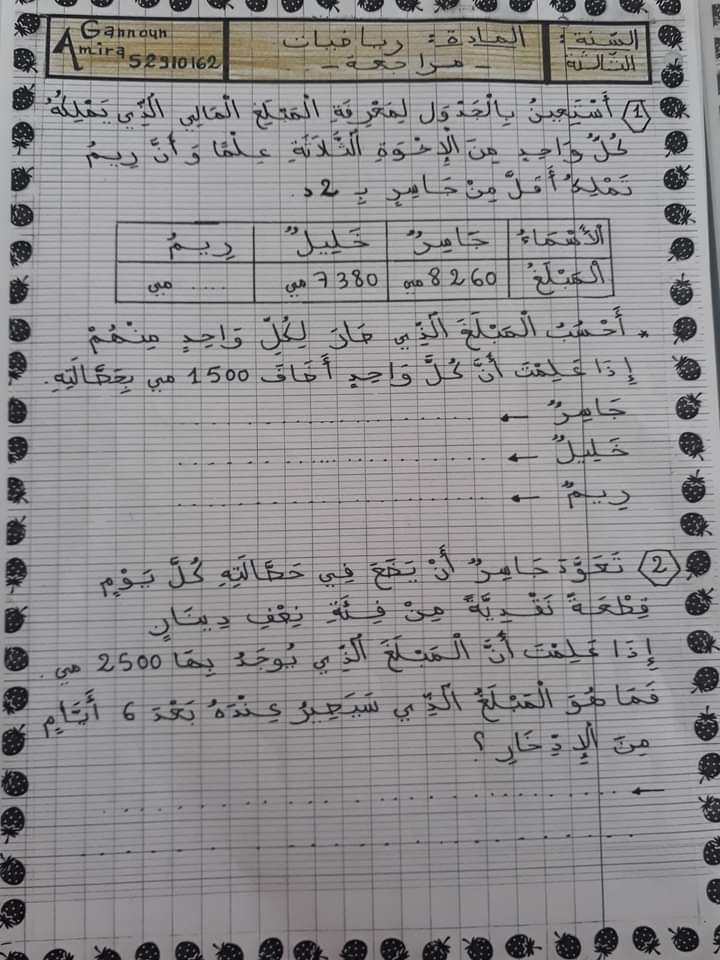 السّنة: الثّالثة
المادة: رياضيات
- مراجعة -
Gannoun
Amira 52910162
1 أَسْتَعِينُ بِالْجَدْوَلِ لِمَعْرِفَةِ الْمَبْلَغِ الْمَالِي الَّذِي يَمْلِكُهُ
كُلُّ وَاحِدٍ مِنَ الْإِخْوَةِ الثَّلَاثَةِ عِلْمًا وَأَنَّ رِيمُ
تَمْلِكُ أَقَلَّ مِنْ جَاسِرٍ بِـ 2د.
الْأَسْمَاءُ جَاسِرٌ خَلِيلٌ رِيمُ
الْمَبْلَغُ 8260 مي 7380 مي .... مي
* أَحْسُبُ الْمَبْلَغَ الَّذِي صَارَ لِكُلِّ وَاحِدٍ مِنْهُمْ
إِذَا عَلِمْتَ أَنَّ كُلَّ وَاحِدٍ أَضَافَ 1500 مي بِحَصَّالَتِهِ.
جَاسِرٌ ← ..............................
خَلِيلٌ ← ..............................
رِيمٌ ← ..............................
2 تَعَوَّدَ جَاسِرٌ أَنْ يَضَعَ فِي حَصَّالَتِهِ كُلَّ يَوْمٍ
قِطْعَةً نَقْدِيَّةً مِنْ فِئَةِ نِصْفِ دِينَارٍ
إِذَا عَلِمْتَ أَنَّ الْمَبْلَغَ الَّذِي يُوجَدُ بِهَا 2500 مي.
فَمَا هُوَ الْمَبْلَغُ الَّذِي سَيَصِيرُ عِنْدَهُ بَعْدَ 6 أَيَّامٍ
مِنَ الْإِدِّخَارِ ؟
← ........................................
........................................